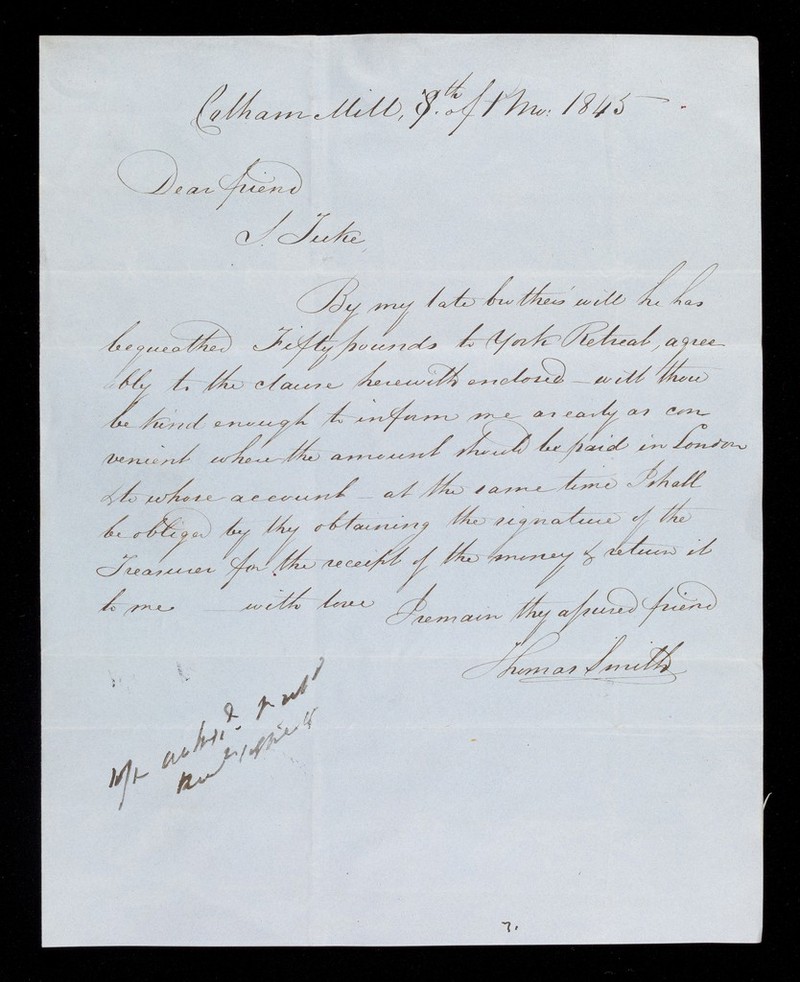 Calham Mill, 8th. of 1 Mo: 1845
Dear friend
S. Tuke,
By my late brothers' will he has
bequeathed Fifty pounds to York Retreat, agree
ably to the clause herewith enclosed – will thou
be kind enough to inform me as early as con
venient where the amount should be paid in London
& to whose account – at the same time I shall
be obliged by thy obtaining the signature of the
Treasurer for the receipt of the money & return it
to me – with love I remain thy assured friend
Thomas Smith
7.